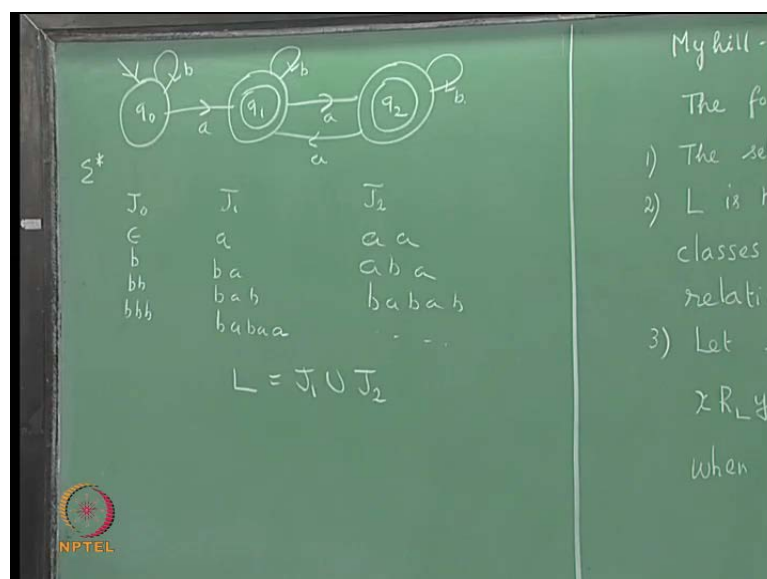 b b
q₀ a q₁ a q₂ b.
a
Σ*
J₀ J₁ J₂
ϵ a a a
b b a a b a
bb b a b b a b a b
bbb b a b a a . - - .
L = J₁ ∪ J₂
Myhill-
The fo
1) The se
2) L is
classes
relati
3) Let
x R_L y
when
NPTEL